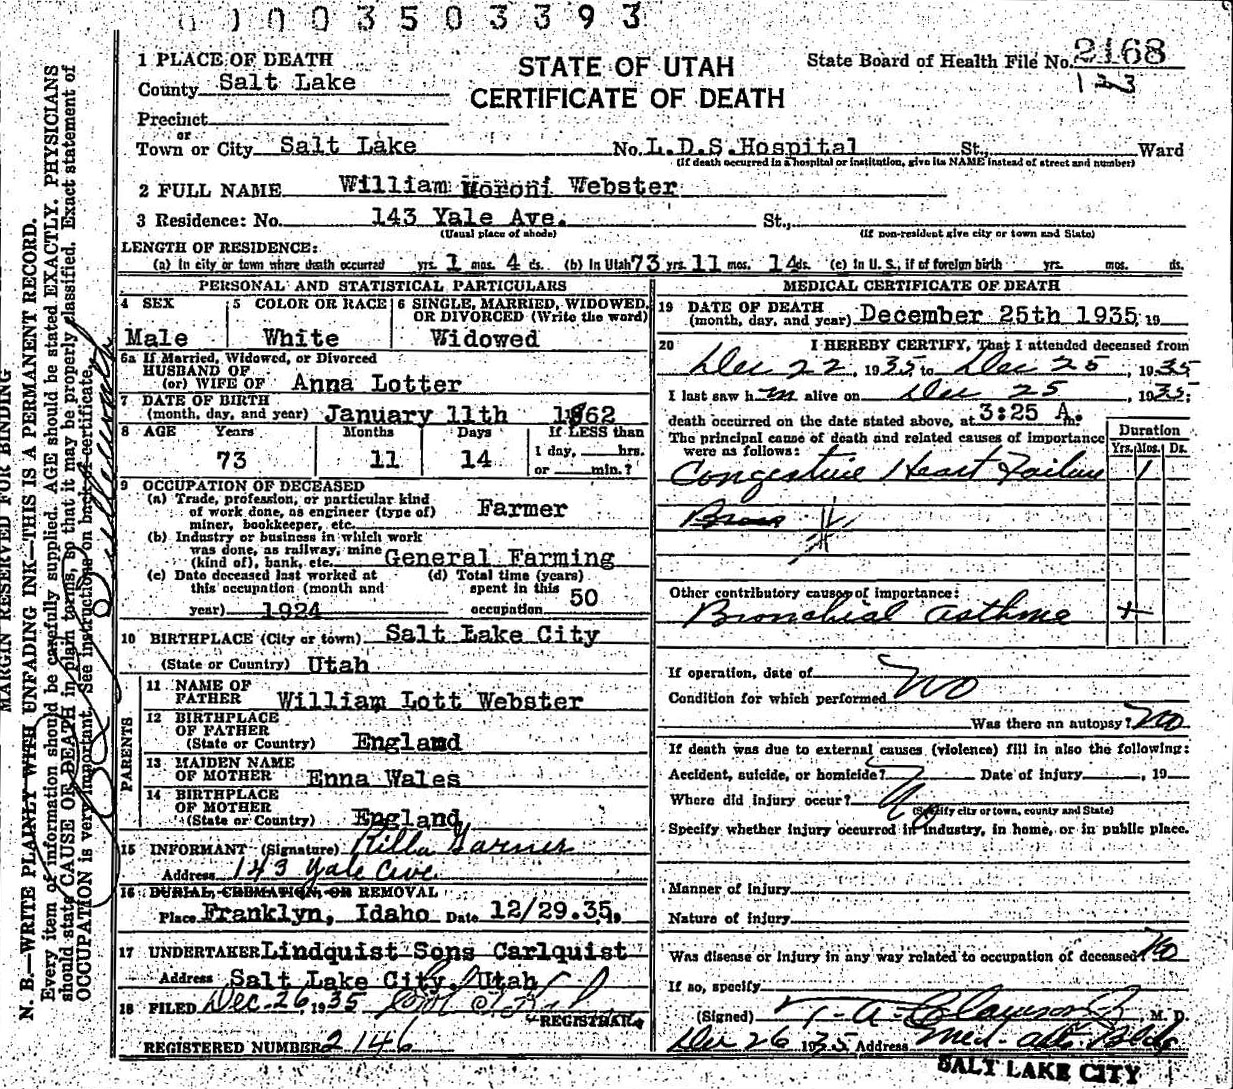 0003503393
1 PLACE OF DEATH
County Salt Lake
Precinct
or
Town or City Salt Lake
STATE OF UTAH
CERTIFICATE OF DEATH
State Board of Health File No. 2168
133
No. L.D.S. Hospital St., Ward
(If death occurred in a hospital or institution, give its NAME instead of street and number)
2 FULL NAME William Moroni Webster
3 Residence: No. 143 Yale Ave. St.,
(Usual place of abode) (If non-resident give city or town and State)
LENGTH OF RESIDENCE:
(a) In city or town where death occurred yrs. 1 mos. 4 ds. (b) In Utah 73 yrs. 11 mos. 14 ds. (c) In U. S., if of foreign birth yrs. mos. ds.
PERSONAL AND STATISTICAL PARTICULARS
4 SEX
Male
5 COLOR OR RACE
White
6 SINGLE, MARRIED, WIDOWED,
OR DIVORCED (Write the word)
Widowed
6a If Married, Widowed, or Divorced
HUSBAND OF
(or) WIFE OF Anna Lotter
7 DATE OF BIRTH
(month, day, and year) January 11th 1862
8 AGE Years Months Days If LESS than
73 11 14 1 day, hrs.
or min.?
9 OCCUPATION OF DECEASED
(a) Trade, profession, or particular kind
of work done, as engineer (type of)
miner, bookkeeper, etc. Farmer
(b) Industry or business in which work
was done, as railway, mine
(kind of), bank, etc. General Farming
(c) Date deceased last worked at
this occupation (month and
year) 1924
(d) Total time (years)
spent in this
occupation 50
10 BIRTHPLACE (City or town) Salt Lake City
(State or Country) Utah
PARENTS
11 NAME OF
FATHER William Lott Webster
12 BIRTHPLACE
OF FATHER
(State or Country) England
13 MAIDEN NAME
OF MOTHER Enna Wales
14 BIRTHPLACE
OF MOTHER
(State or Country) England
15 INFORMANT (Signature) Rilla Garner
Address 143 Yale Ave.
16 BURIAL, CREMATION, OR REMOVAL
Place Franklyn, Idaho Date 12/29.35.
17 UNDERTAKER Lindquist Sons Carlquist
Address Salt Lake City, Utah
18 FILED Dec. 26, 1935
REGISTRAR
REGISTERED NUMBER 2146
MEDICAL CERTIFICATE OF DEATH
19 DATE OF DEATH
(month, day, and year) December 25th 1935 19
20 I HEREBY CERTIFY, That I attended deceased from
Dec 22, 1935 to Dec 25, 1935
I last saw h m alive on Dec 25, 1935;
death occurred on the date stated above, at 3:25 A. m.
The principal cause of death and related causes of importance
were as follows:
Duration
Yrs. Mos. Ds.
Congestive Heart Failure 1
Other contributory causes of importance:
Bronchial asthma +
If operation, date of
Condition for which performed No
Was there an autopsy? No
If death was due to external causes (violence) fill in also the following:
Accident, suicide, or homicide? Date of injury , 19
Where did injury occur? No
(Specify city or town, county and State)
Specify whether injury occurred in industry, in home, or in public place.
Manner of injury
Nature of injury
Was disease or injury in any way related to occupation of deceased? No
If so, specify
(Signed) T. A. Clawson Jr M. D.
Dec 26 1935 Address Med. Arts. Bldg
SALT LAKE CITY
MARGIN RESERVED FOR BINDING
N. B.—WRITE PLAINLY WITH UNFADING INK—THIS IS A PERMANENT RECORD.
Every item of information should be carefully supplied. AGE should be stated EXACTLY. PHYSICIANS
should state CAUSE OF DEATH in plain terms, so that it may be properly classified. Exact statement of
OCCUPATION is very important. See instructions on back of certificate.